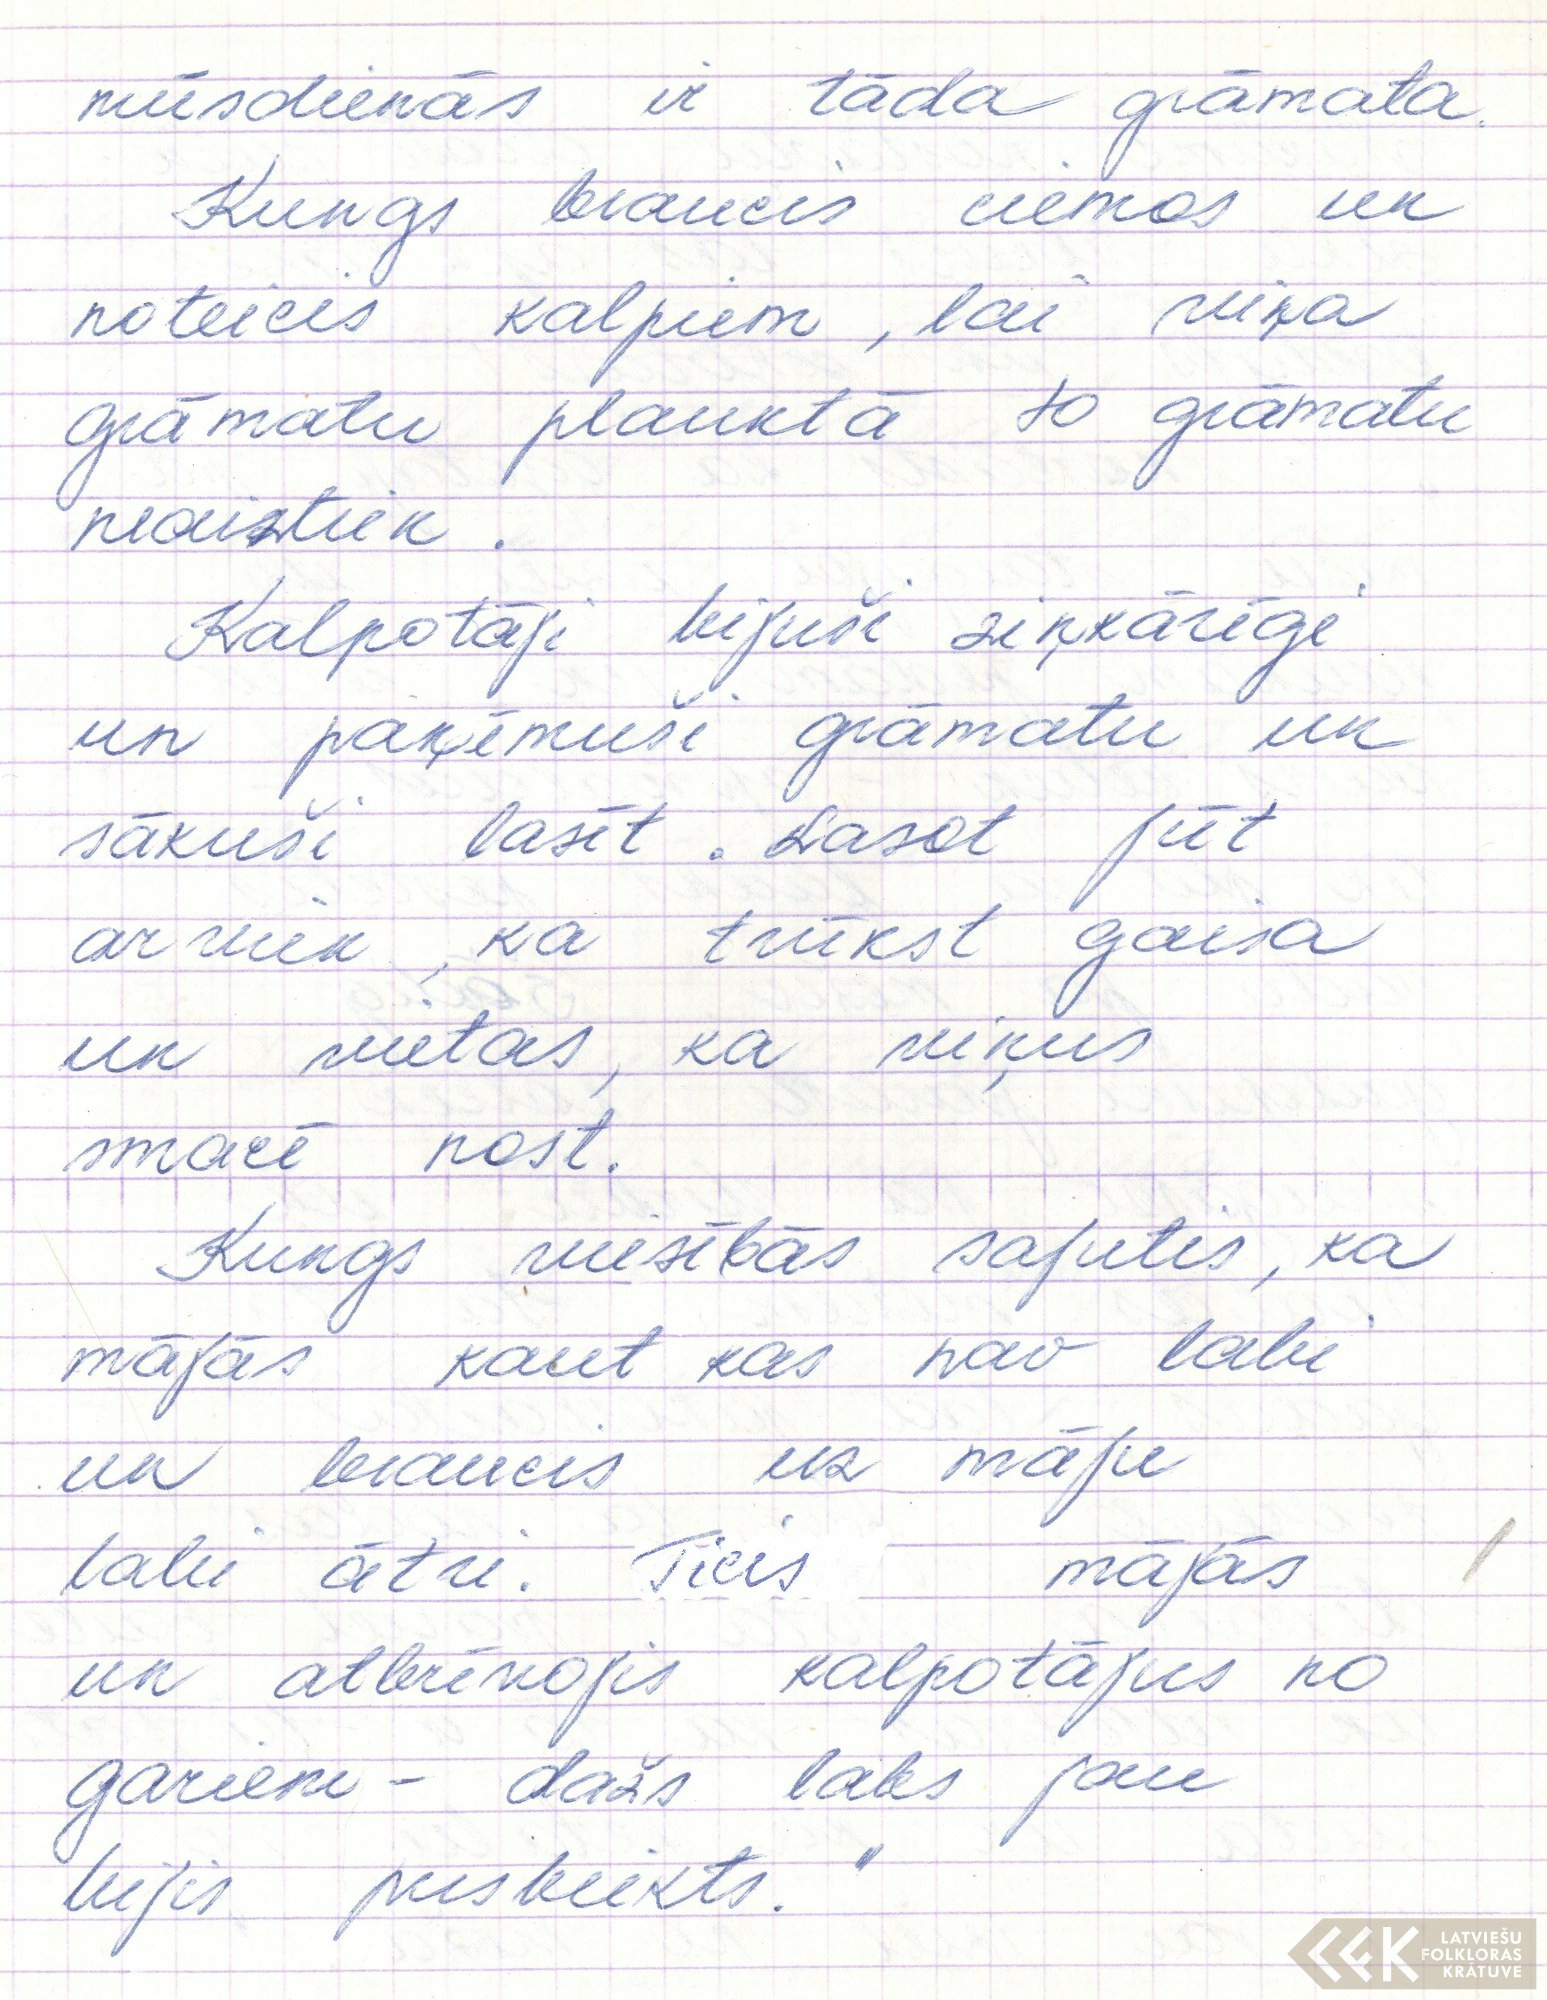 mūsdienās ir tāda grāmata.
Kungs braucis ciemos un
noteicis kalpiem, lai viņa
grāmatu plauktā to grāmatu
neaiztiek.
Kalpotāji bijuši ziņkārīgi
un paņēmuši grāmatu un
sākuši lasīt. Lasot jūt
arvien, ka trūkst gaisa
un vietas, ka viņus
smacē nost.
Kungs viesībās sajutis, ka
mājās kaut kas nav labi
un braucis uz māju
labi ātri. Ticis mājās
un atbrīvojis kalpotājus no
gariem - dažs labs jau
bijis pusbeikts."
LATVIEŠU
FOLKLORAS
KRĀTUVE